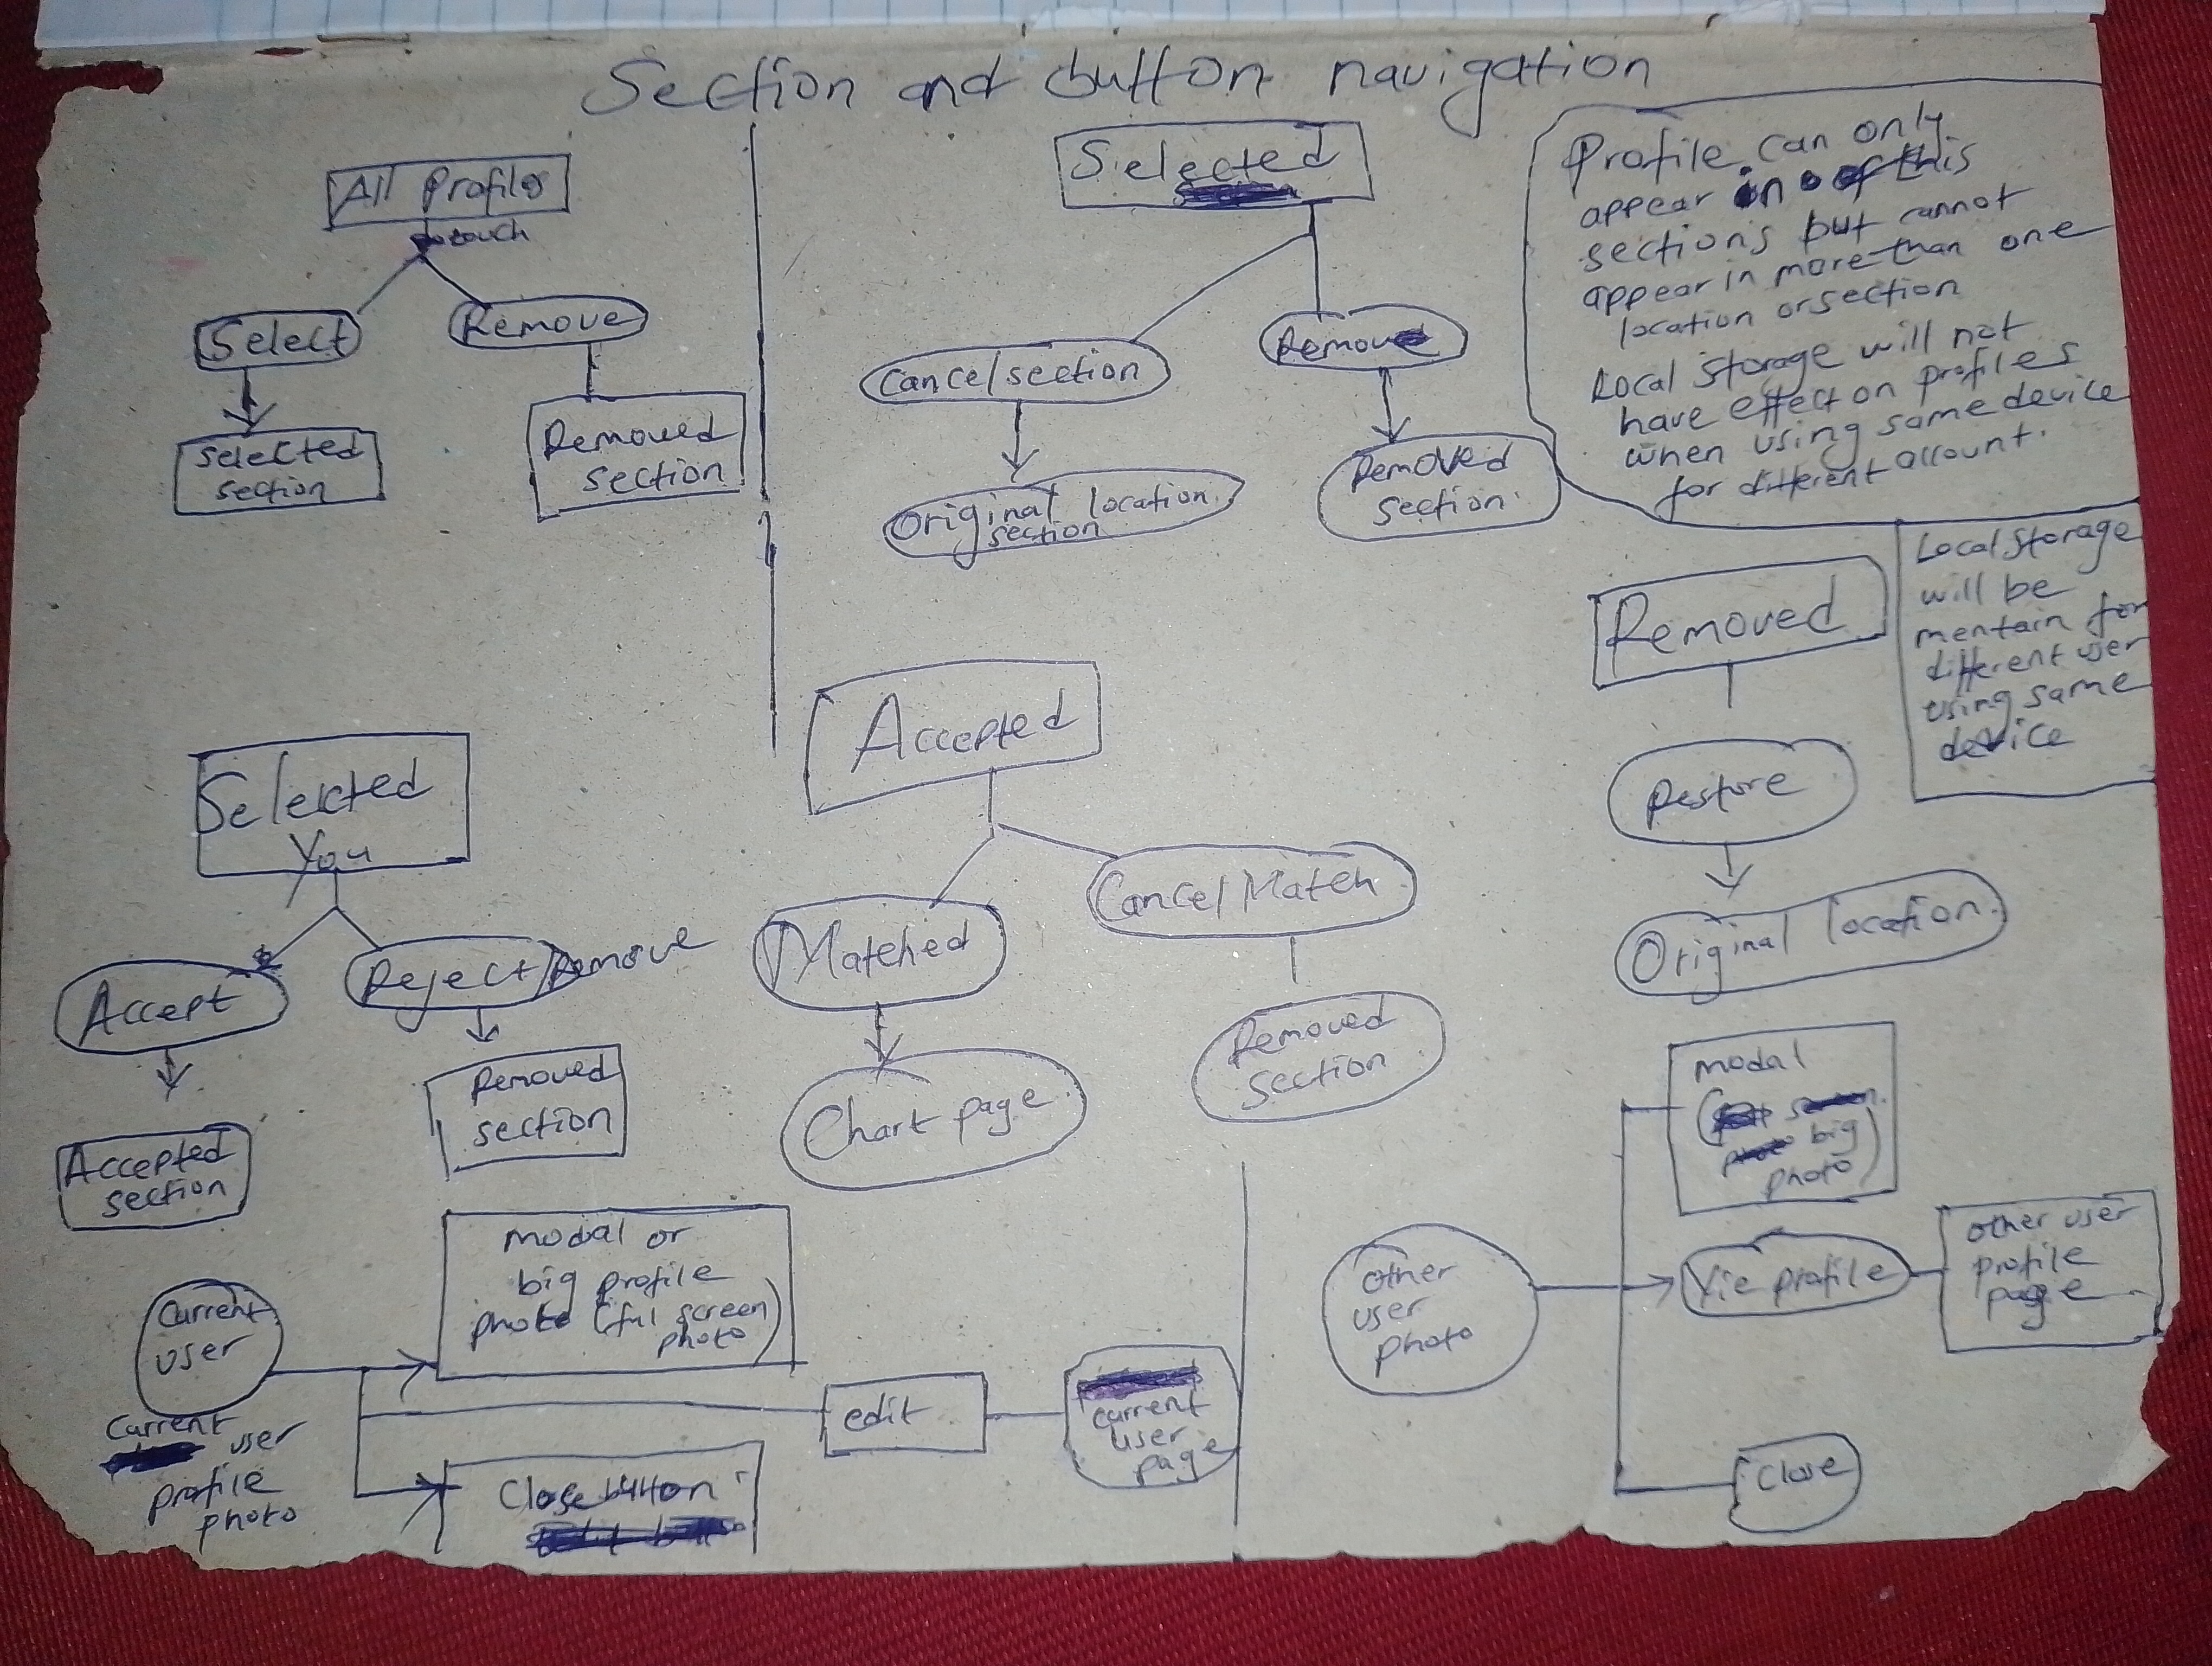 Section and button navigation
All Profiles
touch
Select
Remove
Selected
section
Removed
section
Selected
Cancel section
Remove
Original location
section
Removed
section
Profile can only
appear in of this
sections but cannot
appear in more than one
location or section
Local Storage will not
have effect on profiles
when using same device
for different account.
Local Storage
will be
mentain for
different user
using same
device
Removed
Restore
Original location.
Selected
You
Accept
Reject/Remove
Accepted
section
Removed
section
Accepted
Matched
Cancel Match
Chart page
Removed
section
Current
user
Current
user
profile
photo
modal or
big profile
photo (ful screen
photo)
edit
current
user
page
Close button
other
user
photo
modal
(big
photo)
Vie profile
other user
profile
page
Close